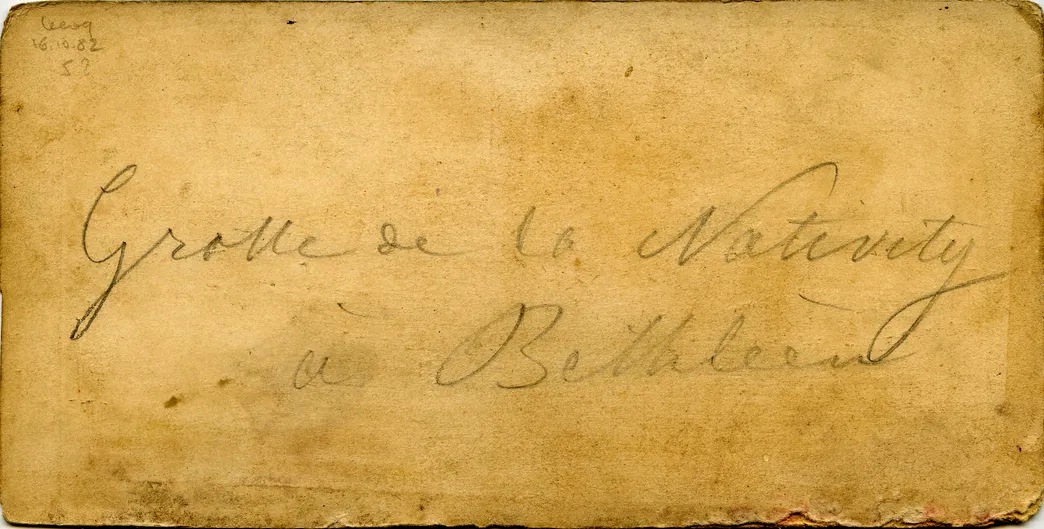 16.10.82
5?
Grotte de la Nativity
à Bethléem